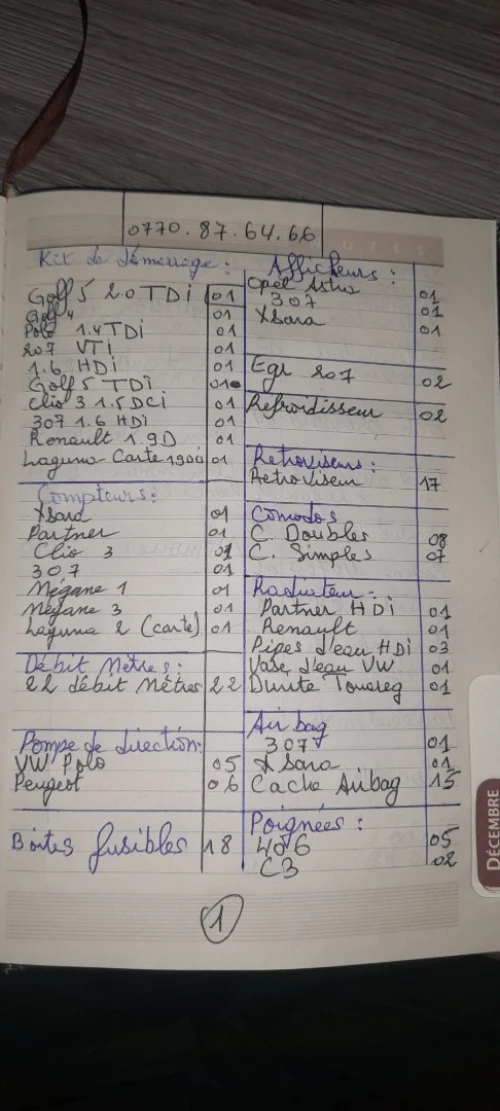 0770.87.64.66
NOTES
Kit de démarrage :
Golf 5 2.0 TDi 01
Golf 4 01
Polo 1.4 TDi 01
207 VTi 01
1.6 HDi 01
Golf 5 TDi 01
Clio 3 1.5 DCi 01
307 1.6 HDi 01
Renault 1.9D 01
Laguna Carte 1.9DCi 01
Compteurs :
Xsara 01
Partner 01
Clio 3 01
307 01
Mégane 1 01
Mégane 3 01
Laguna 2 (carte) 01
Débit Mètres :
22 débit Mètres 22
Pompe de direction:
VW Polo 05
Peugeot 06
Boites fusibles 18
Afficheurs :
Opel Astra 01
307 01
Xsara 01
Egr 207 02
Refroidisseur 02
Retroviseurs :
Retroviseur 17
Comodos
C. Doubles 08
C. Simples 07
Radiateur :
Partner HDi 01
Renault 01
Pipes d'eau HDi 03
Vase d'eau VW 01
Durite Touareg 01
Airbag
307 01
Xsara 01
Cache Airbag 15
Poignées :
406 05
C3 02
1
DÉCEMBRE